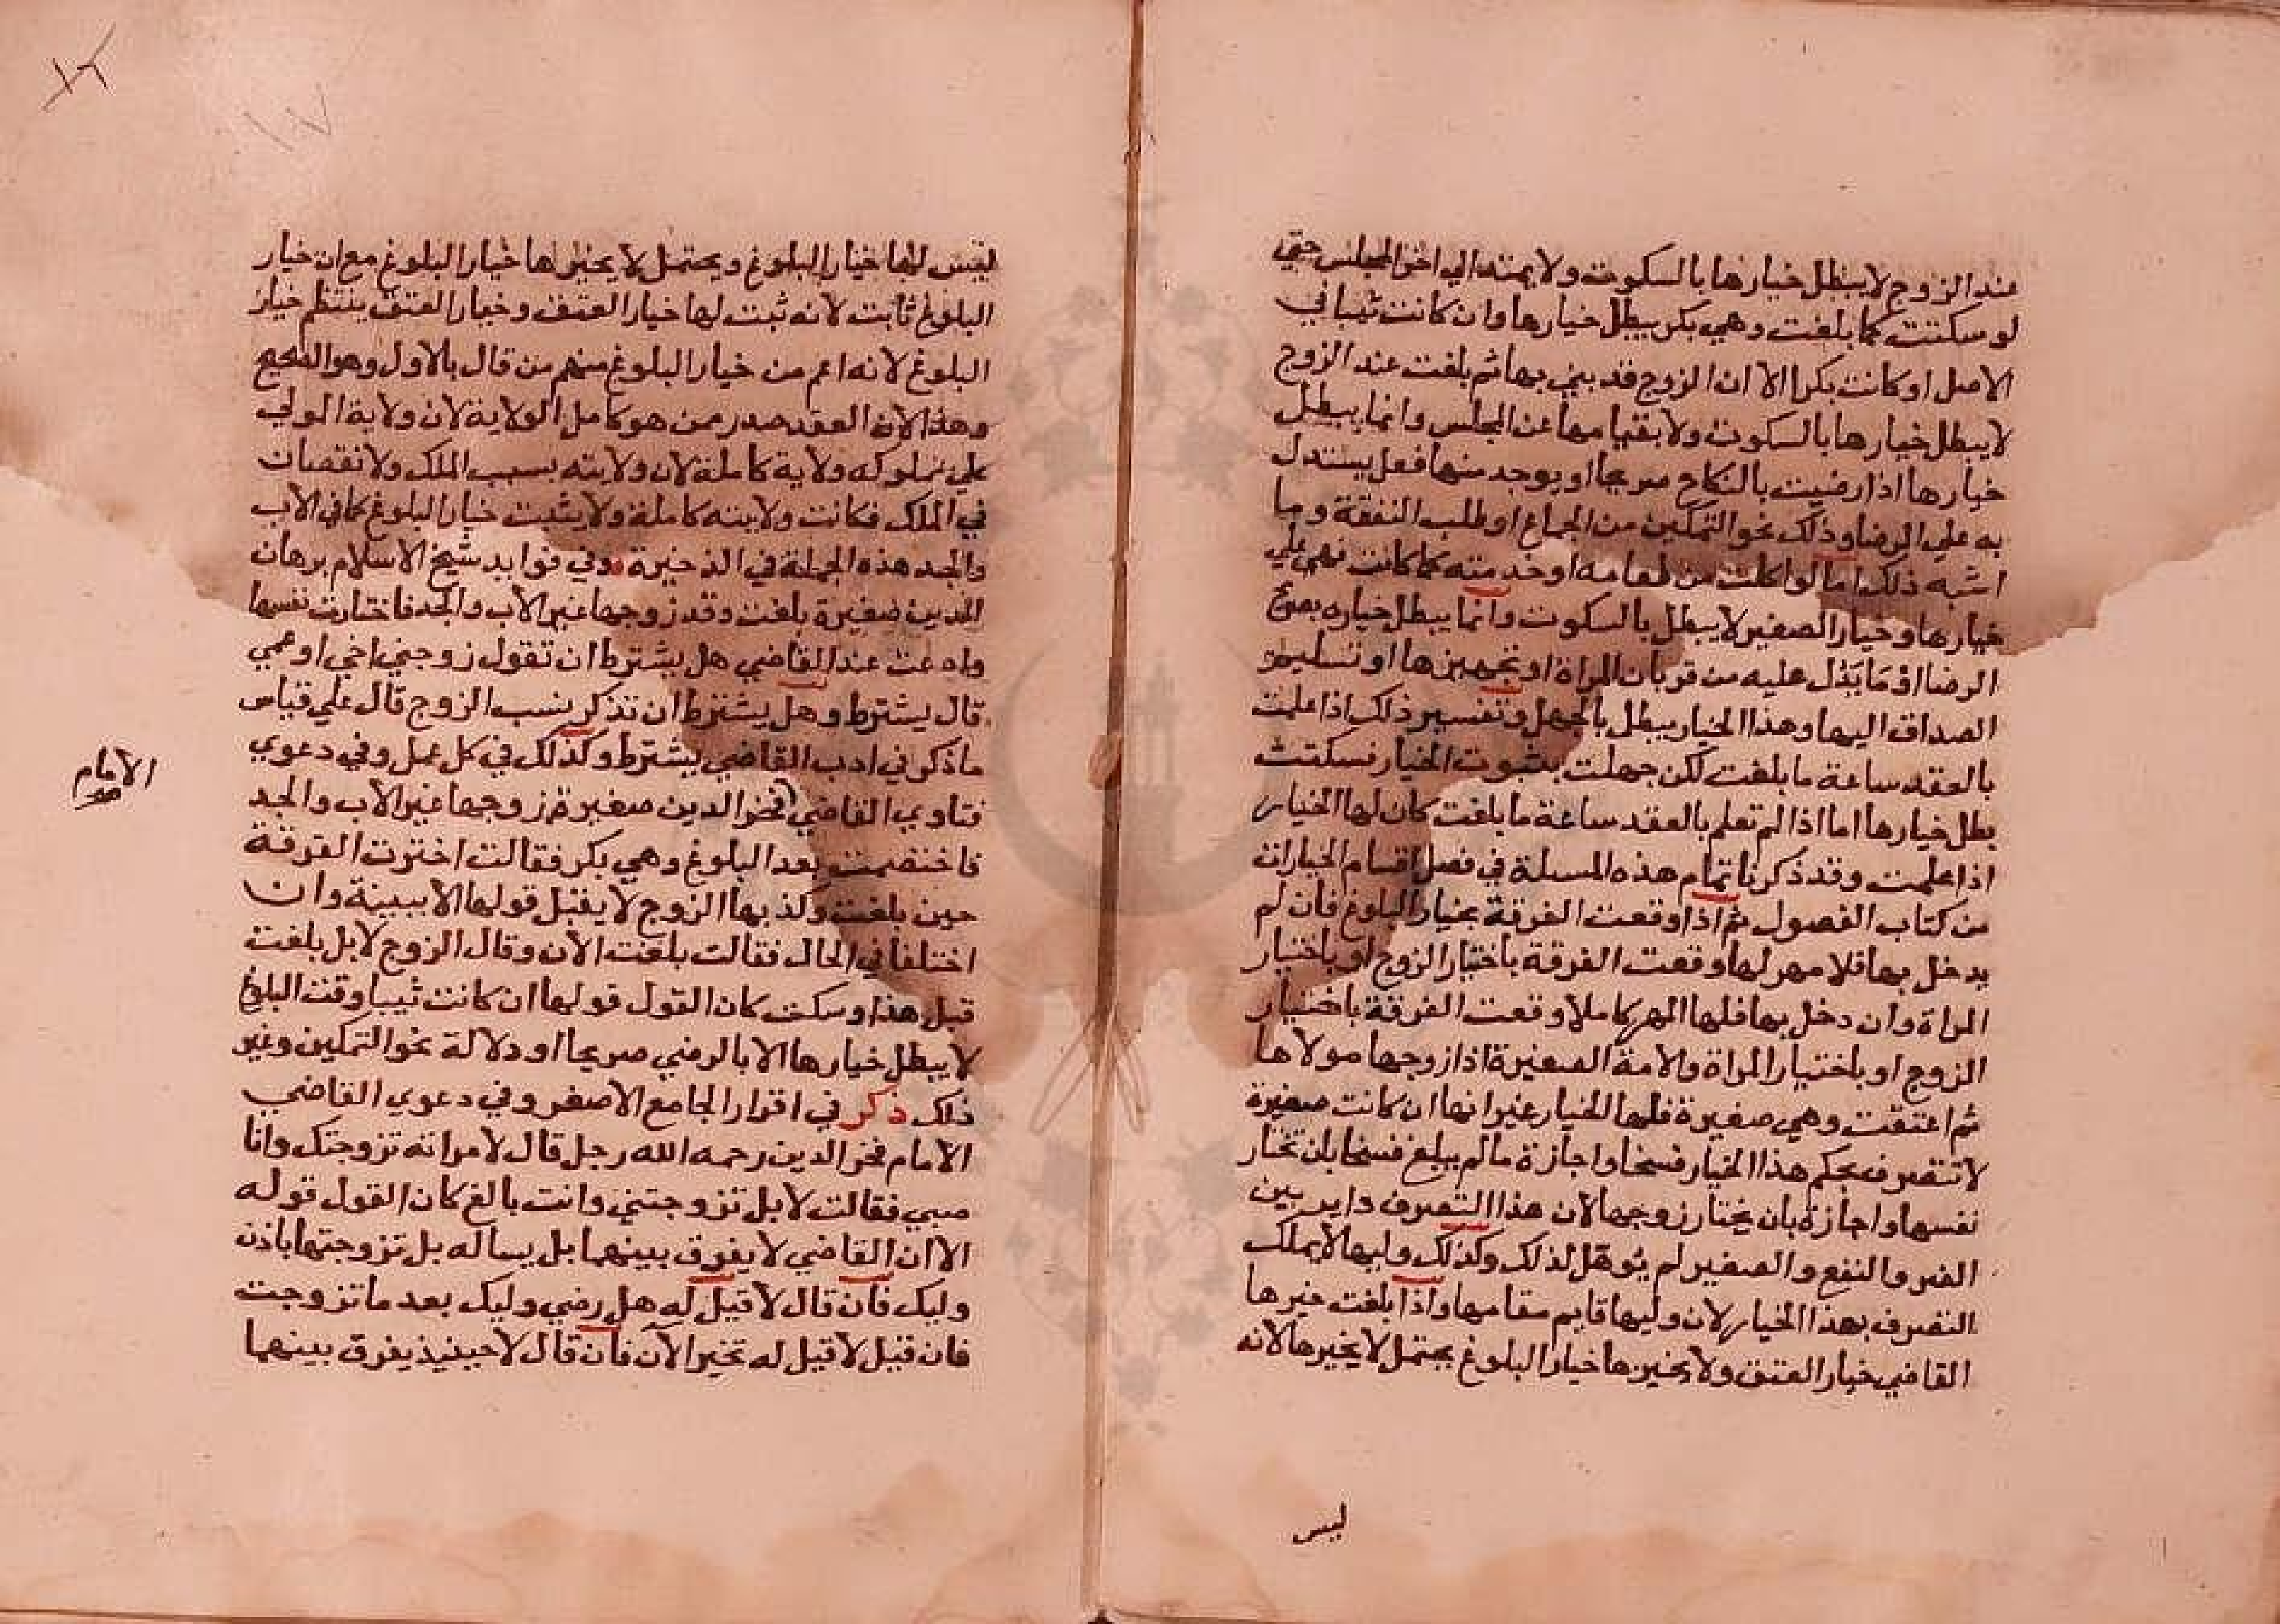 عند الزوج لا يبطل خيارها بالسكوت ولا يمتد الي اخر المجلس حتي
لو سكتت كما بلغت وهي بكر يبطل خيارها وان كانت ثيبا في
الاصل او كانت بكرا الا ان الزوج قد بني بها ثم بلغت عند الزوج
لا يبطل خيارها بالسكوت ولا بقيامها عن المجلس وانما يبطل
خيارها اذا رضيت بالنكاح صريحا او يوجد منها فعل يستدل
به علي الرضا وذلك نحو التمكين من الجماع او طلب النفقة وما
اشبه ذلك اما لو اكلت من طعامه او خدمته كما كانت فهي علي
خيارها وخيار الصغير لا يبطل بالسكوت وانما يبطل خياره بصريح
الرضا او مَا يَدُل عليه من قربان المراة او تجهيزها او تسليم
الصداق اليها وهذا الخيار يبطل بالجهل وتفسير ذلك اذا علمت
بالعقد ساعة ما بلغت لكن جهلت بثبوت الخيار فسكتت
بطل خيارها اما اذا لم تعلم بالعقد ساعة ما بلغت كان لها الخيار
اذا علمت وقد ذكرنا تمام هذه المسلة في فصل اقسام الخيارات
من كتاب الفصول ثم اذا وقعت الفرقة بخيار البلوغ فان لم
يدخل بها فلا مهر لها وقعت الفرقة باختيار الزوج او باختيار
المراة وان دخل بها فلها المهر كاملا وقعت الفرقة باختيار
الزوج او باختيار المراة والامة الصغيرة اذا زوجها مولاها
ثم اعتقت وهي صغيرة فلها الخيار غير انها ان كانت صغيرة
لا تتصرف بحكم هذا الخيار فسخا واجازة ما لم يبلغ فسخا بان تختار
نفسها واجازة بان يختار زوجها لان هذا التصرف داير بين
الضر والنفع والصغير لم يُوهّل لذلك وكذلك وليها لا يملك
التصرف بهذا الخيار لان وليها قايم مقامها واذا بلغت خيرها
القاضي خيار العتق ولا يخيرها خيار البلوغ يحتمل لا يخيرها لانه
ليس
ليس لها خيار البلوغ ويحتمل لا يخيرها خيار البلوغ مع ان خيار
البلوغ ثابت لانه ثبت لها خيار العتق وخيار العتق ينتظم خيار
البلوغ لانه اعم من خيار البلوغ منهم من قال بالاول وهو الصحيح
وهذا لان العقد صدر ممن هو كامل الولاية لان ولاية المولي
علي مملوكه ولاية كاملة لان ولايته بسبب الملك ولا نقصان
في الملك فكانت ولايته كاملة ولا يثبت خيار البلوغ كما في الاب
والجد هذه الجملة في الذخيرة وفي فوايد شيخ الاسلام برهان
الدين صغيرة بلغت وقد زوجها غير الاب والجد فاختارت نفسها
وادعت عند القاضي هل يشترط ان تقول زوجني اخي او عمي
قال يشترط وهل يشترط ان تذكر بنسب الزوج قال علي قياس
ما ذكر في ادب القاضي يشترط وكذلك في كل عمل وفي دعوي
فتاوي القاضي فخر الدين صغيرة زوجها غير الاب والجد
الامام
فاختصمت بعد البلوغ وهي بكر فقالت اخترت الفرقة
حين بلغت وكذبها الزوج لا يقبل قولها الا ببينة وان
اختلفا في الحال فقالت بلغت الان وقال الزوج لا بل بلغت
قبل هذا وسكت كان القول قولها ان كانت ثيبا وقت البلوغ
لا يبطل خيارها الا بالرضي صريحا او دلالة نحو التمكين وغير
ذلك ذكر في اقرار الجامع الاصغر وفي دعوي القاضي
الامام فخر الدين رحمه الله رجل قال لامراته تزوجتك وانا
صبي فقالت لا بل تزوجتني وانت بالغ كان القول قوله
الا ان القاضي لا يفرق بينهما بل يساله بل تزوجتها باذن
وليك فان قال لا قيل له هل رضي وليك بعد ما تزوجت
فان قيل لا قيل له تخير الآن فان قال لا حينيذ يفرق بينهما